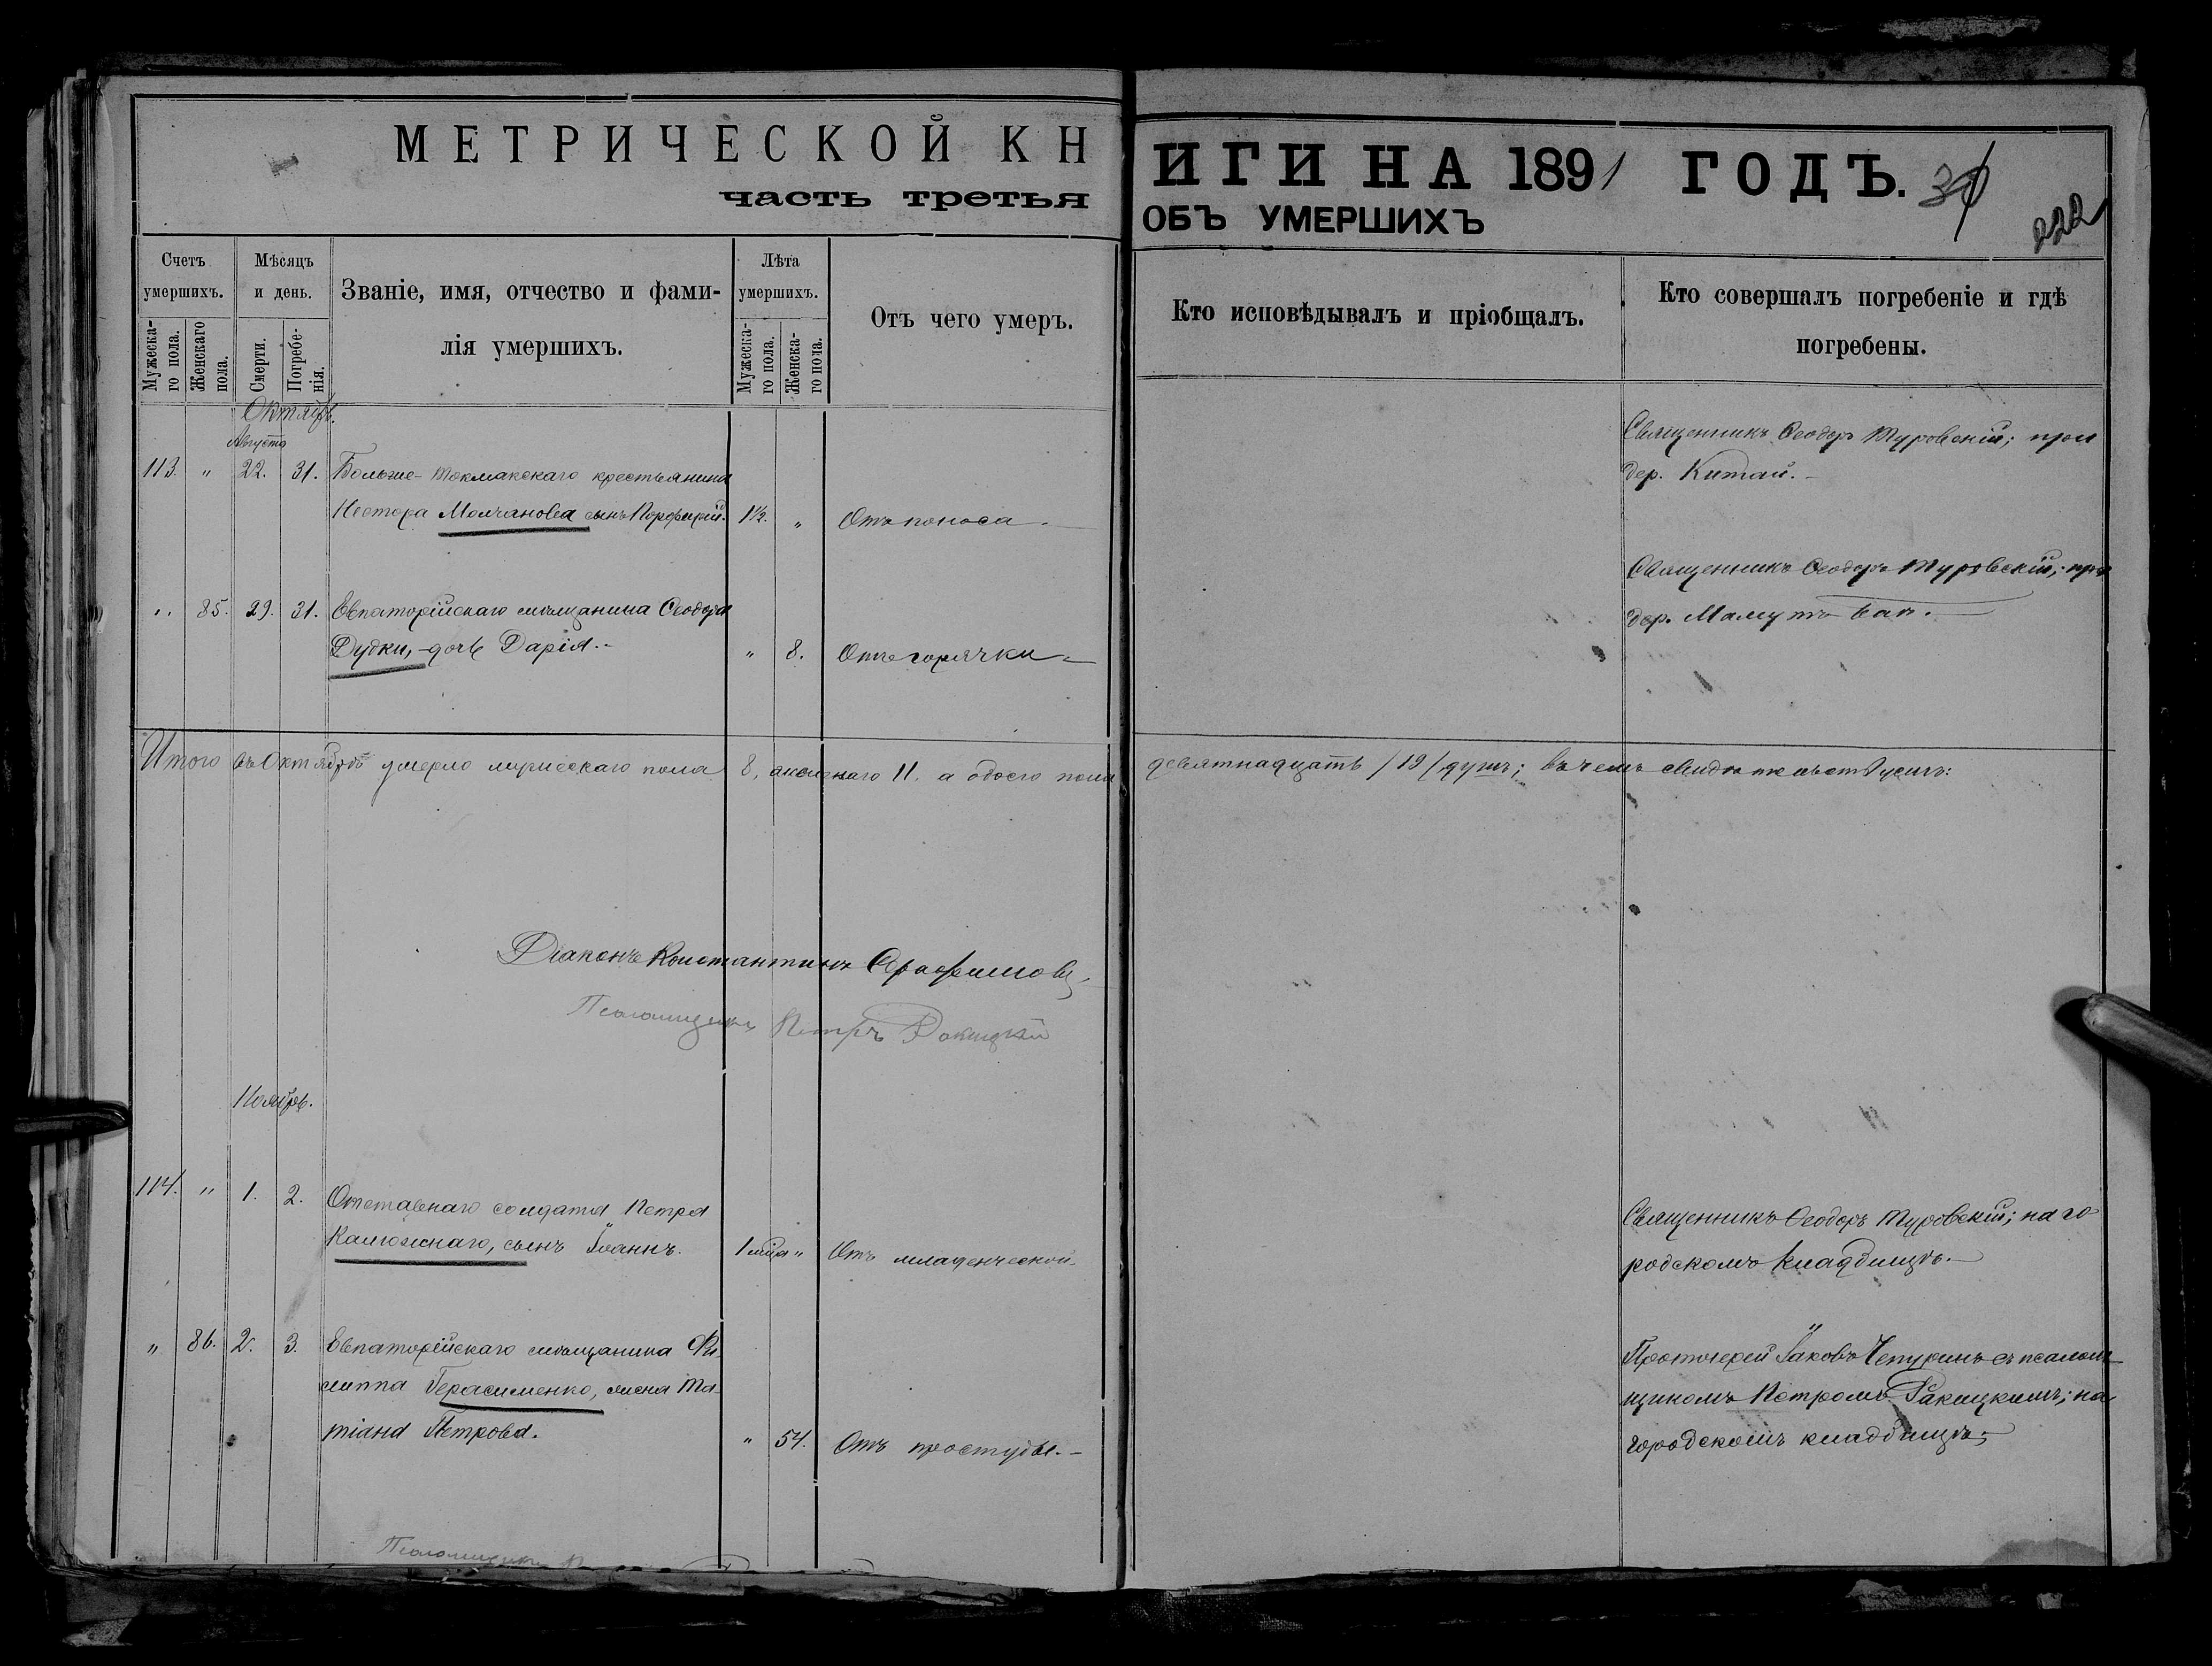 МЕТРИЧЕСКОЙ КН
ИГИ НА 1891 ГОДЪ.
часть третья
ОБЪ УМЕРШИХЪ
222
Счетъ умершихъ.
Мѣсяцъ и день.
Званіе, имя, отчество и фами-
лія умершихъ.
Лѣта умершихъ.
Отъ чего умеръ.
Кто исповѣдывалъ и пріобщалъ.
Кто совершалъ погребеніе и гдѣ
погребены.
Мужеска-
го пола.
Женскаго
пола.
Смерти.
Погребе-
нія.
Мужеска-
го пола.
Женска-
го пола.
Октябрь.
Августа
113. " 22. 31. Больше-Токмакскаго крестьянина
Нестора Молчанова сынъ Порфирій. 1½. " Отъ поноса.
Священникъ Ѳеодоръ Туровскій; при
дер. Китай.
" 85. 29. 31. Евпаторійскаго мѣщанина Ѳеодора
Дудки, дочь Дарія. " 8. Отъ горячки
Священникъ Ѳеодоръ Туровскій; при
дер. Мамутъ
Итого въ Октябрѣ умерло мужескаго пола 8, женскаго 11. а обоего пола девятнадцать /19/ душъ; въ чемъ свидѣтельствуемъ:
Діаконъ Константинъ
Псаломщикъ Петръ Ракицкій
Ноябрь.
114. " 1. 2. Отставнаго солдата Петра
Калюжнаго, сынъ Іоаннъ. 1 мѣсяц " Отъ младенческой
Священникъ Ѳеодоръ Туровскій; на го-
родскомъ кладбищѣ.
" 86. 2. 3. Евпаторійскаго мѣщанина Фи-
липпа Герасименко, жена Та-
тіана Петрова. " 54. Отъ простуды.
Протоіерей Іаковъ Чепуринъ съ псалом-
щикомъ Петромъ Ракицкимъ; на
городскомъ кладбищѣ
Псаломщикъ